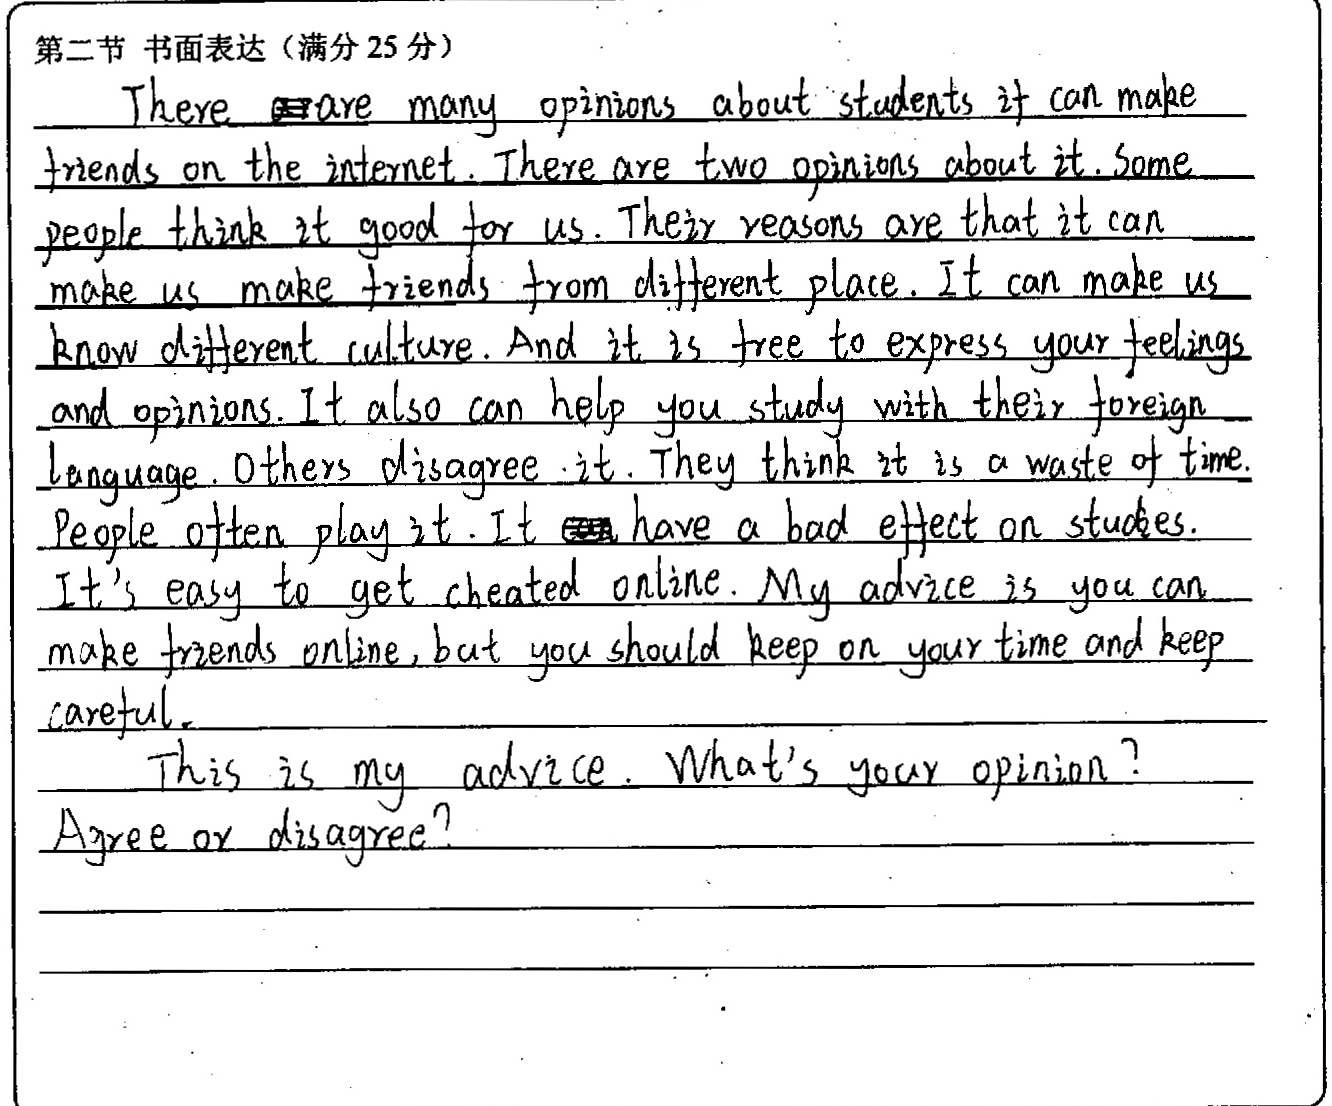 第二节 书面表达（满分 25 分）
There are many opinions about students if can make
friends on the internet. There are two opinions about it. Some
people think it good for us. Their reasons are that it can
make us make friends from different place. It can make us
know different culture. And it is free to express your feelings
and opinions. It also can help you study with their foreign
language. Others disagree it. They think it is a waste of time.
People often play it. It have a bad effect on studies.
It's easy to get cheated online. My advice is you can
make friends online, but you should keep on your time and keep
careful.
This is my advice. What's your opinion?
Agree or disagree?